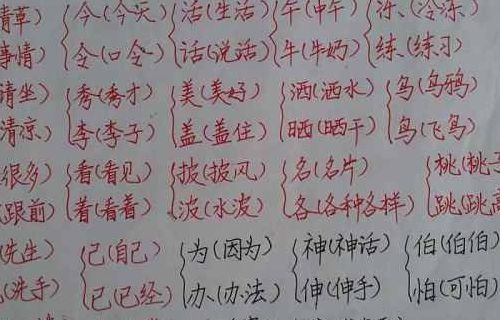 青草) {今(今天) {活(生活) {午(中午) {冻(冷冻)
事情) 令(口令) 话(说话) 牛(牛奶) 练(练习)
请坐) {秀(秀才) {美(美好) {洒(洒水) {乌(乌鸦)
清凉) 李(李子) 盖(盖住) 晒(晒干) 鸟(飞鸟)
很多) {看(看见) {披(披风) {名(名片) {桃(桃子
跟前) 着(看着) 波(水波) 各(各种各样) 跳(跳高
先生) {己(自己) {为(因为) {神(神话) {伯(伯伯)
(洗手) 已(已经) 办(办法) 伸(伸手) 怕(可怕)